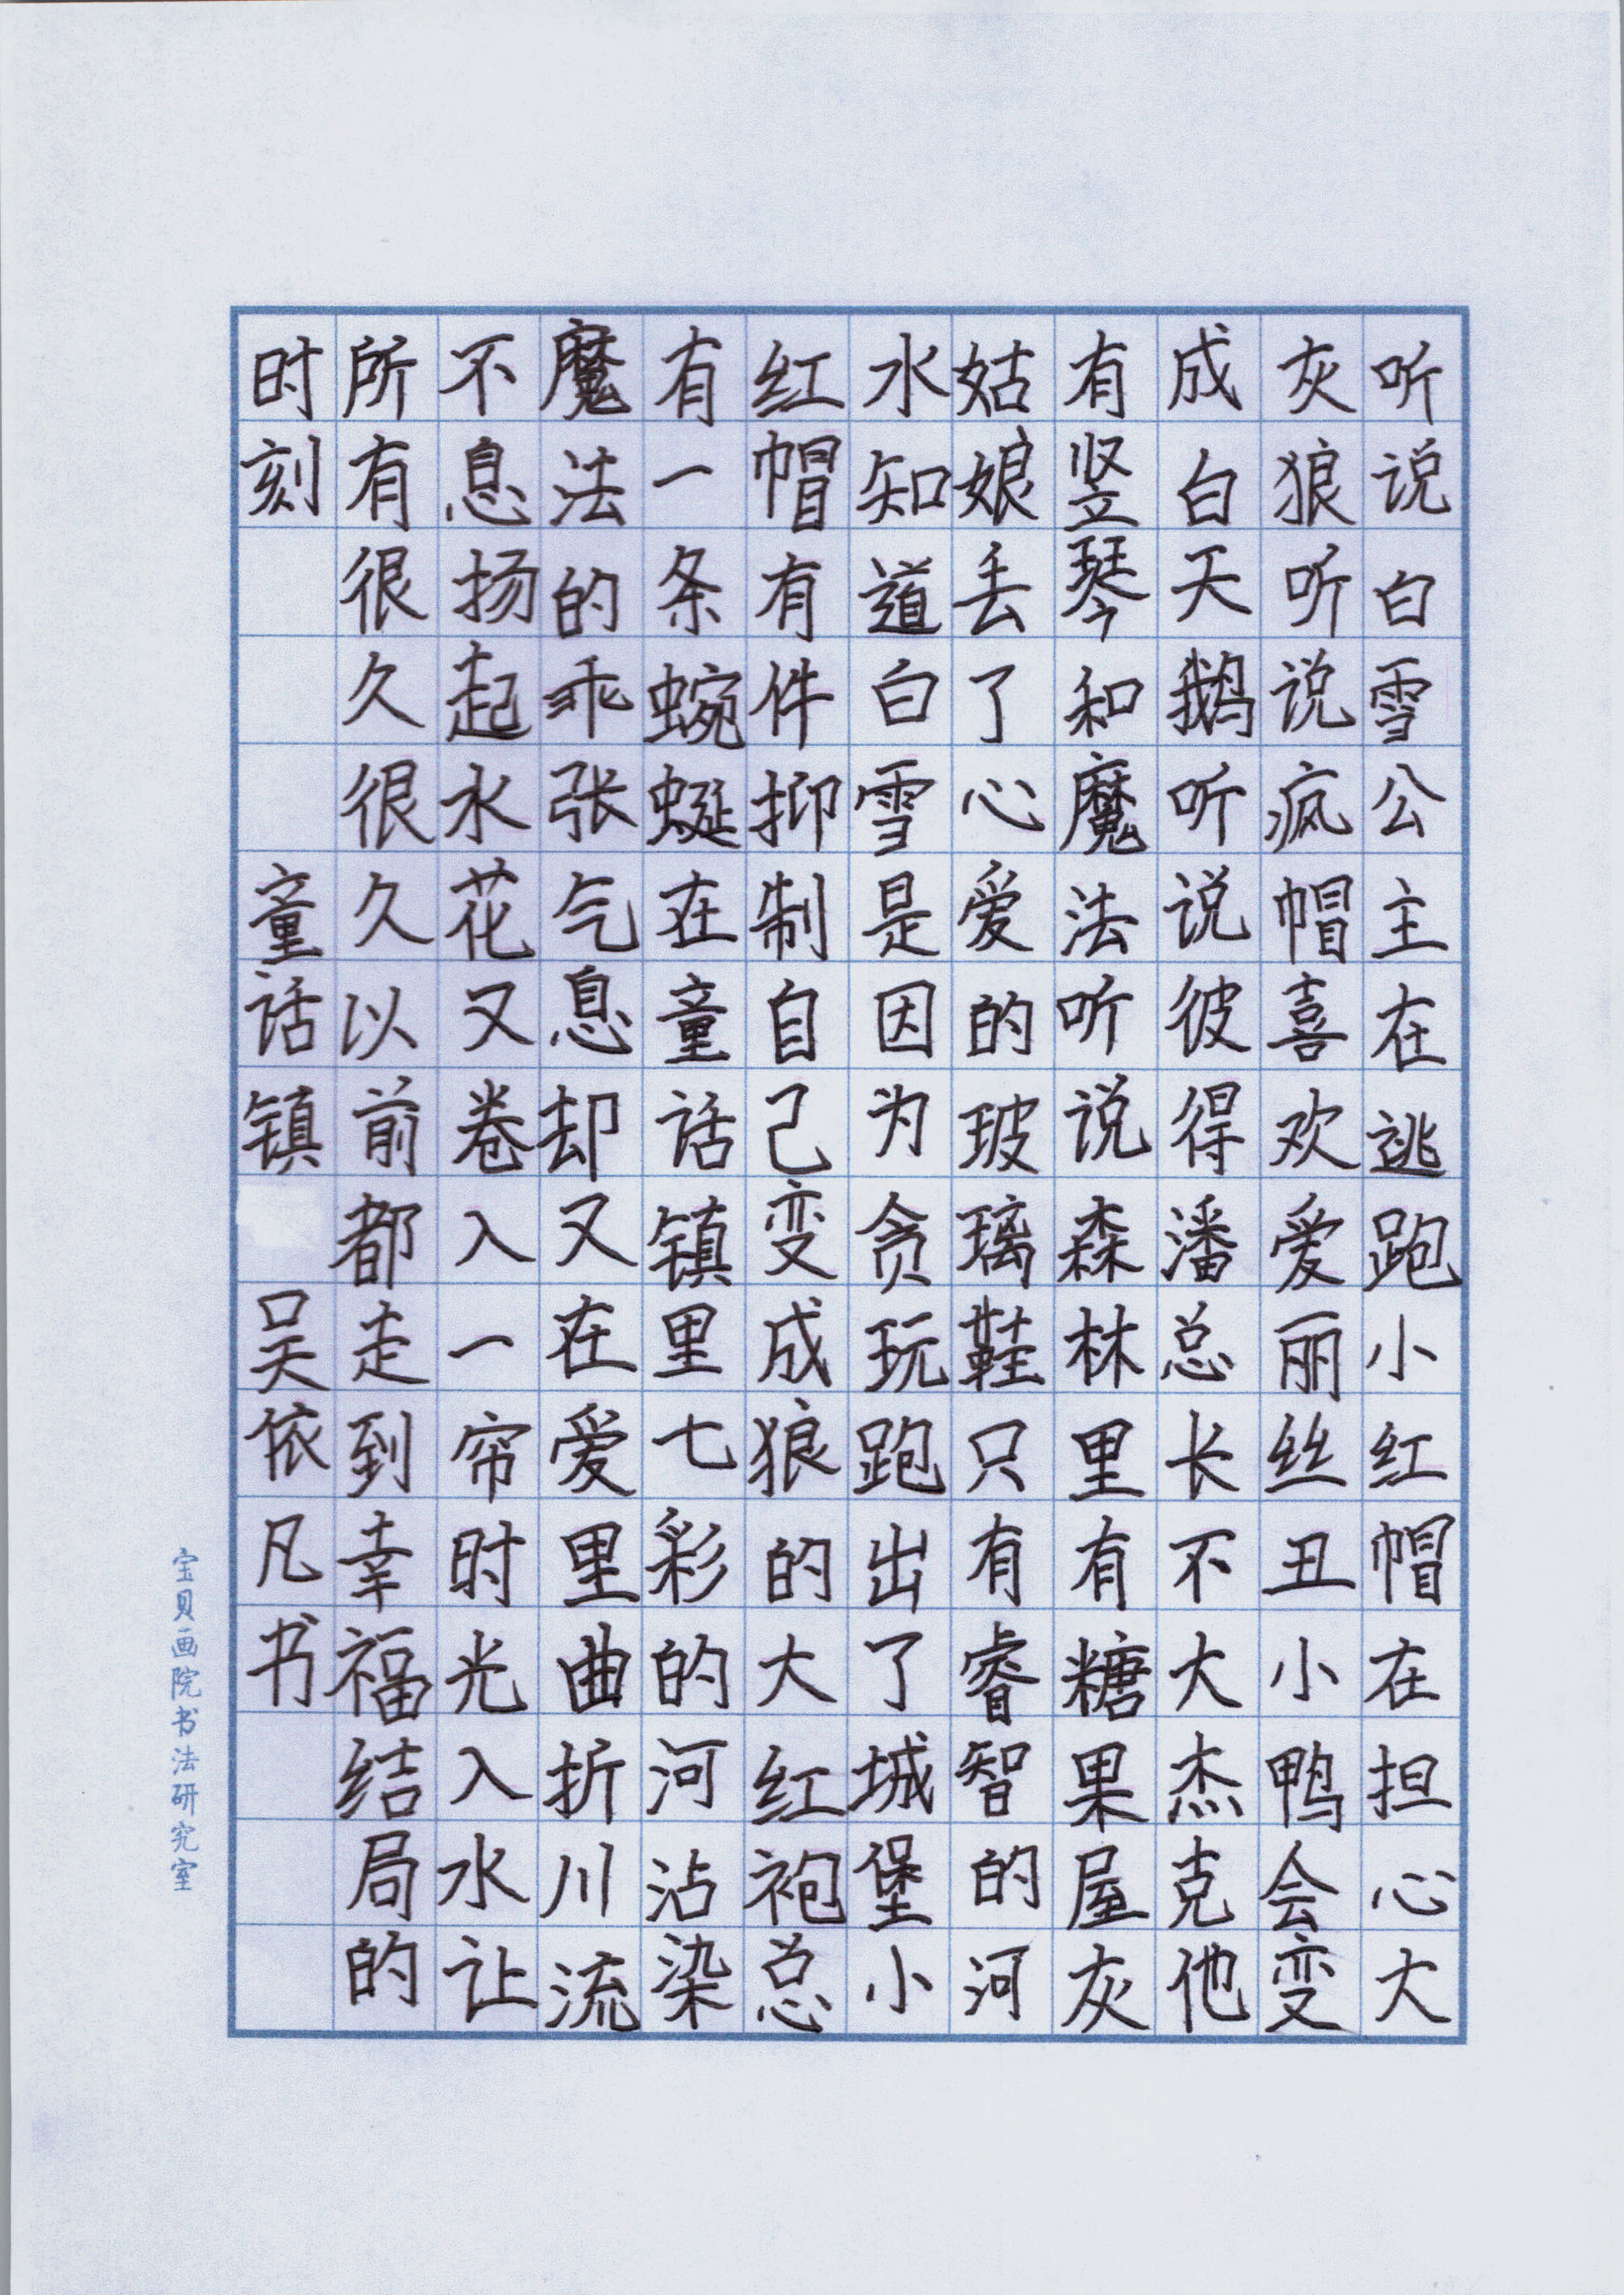 听说白雪公主在逃跑小红帽在担心大
灰狼听说疯帽喜欢爱丽丝丑小鸭会变
成白天鹅听说彼得潘总长不大杰克他
有竖琴和魔法听说森林里有糖果屋灰
姑娘丢了心爱的玻璃鞋只有睿智的河
水知道白雪是因为贪玩跑出了城堡小
红帽有件抑制自己变成狼的大红袍总
有一条蜿蜒在童话镇里七彩的河沾染
魔法的乖张气息却又在爱里曲折川流
不息扬起水花又卷入一帘时光入水让
所有很久很久以前都走到幸福结局的
时刻
童话镇 吴依凡书
宝贝画院书法研究室